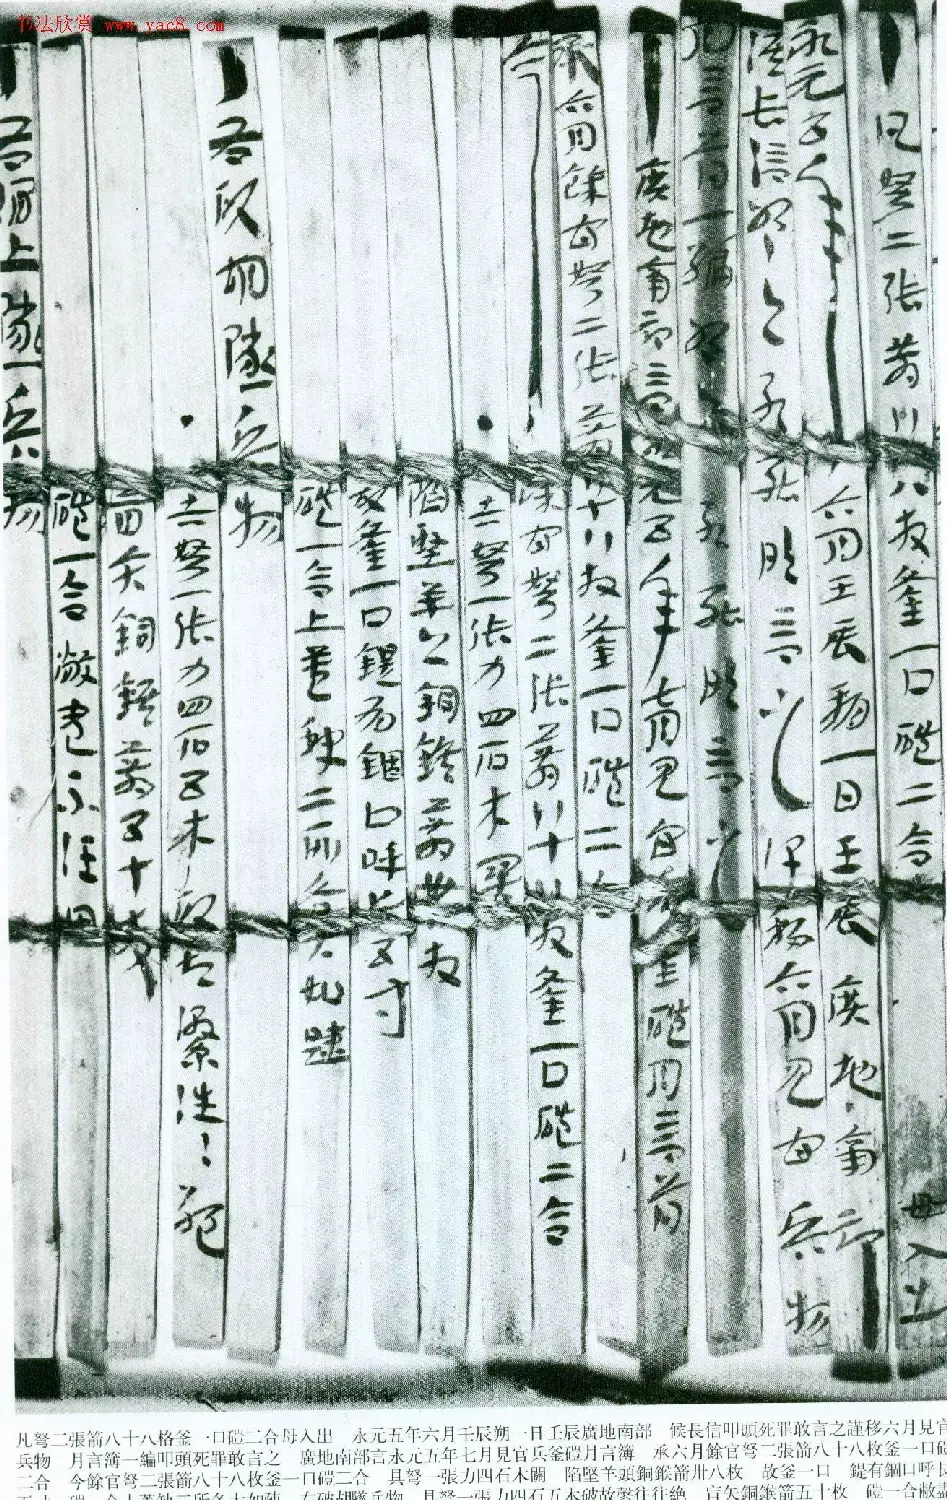 书法欣赏 www.yac8.com
凡弩二張箭八十八枚釜一口磑二合 毋入出
永元五年六月壬辰朔一日壬辰廣地南部
候長信叩頭死罪敢言之謹移六月見官兵物
月言簿一編叩頭死罪敢言之
廣地南部言永元五年七月見官兵釜磑月言簿
承六月餘官弩二張箭八十八枚釜一口磑二合
今餘官弩二張箭八十八枚釜一口磑二合
具弩一張力四石木關
陷堅羊頭銅鍭箭卅八枚
故釜一口鍉有錮口呼長五寸
磑一合上蓋缺二所各大如疎
右破胡隧兵物
具弩一張力四石五木破故繫往往絶
官矢銅鍭箭五十枚
磑一合敝盡不任用
右澗上隧兵物
凡弩二張箭八十八格釜一口磑二合毋入出 永元五年六月壬辰朔一日壬辰廣地南部 候長信叩頭死罪敢言之謹移六月見官
兵物 月言簿一編叩頭死罪敢言之 廣地南部言永元五年七月見官兵釜磑月言簿 承六月餘官弩二張箭八十八枚釜一口磑
二合 今餘官弩二張箭八十八枚釜一口磑二合 具弩一張力四石木關 陷堅羊頭銅鍭箭卅八枚 故釜一口 鍉有錮口呼長